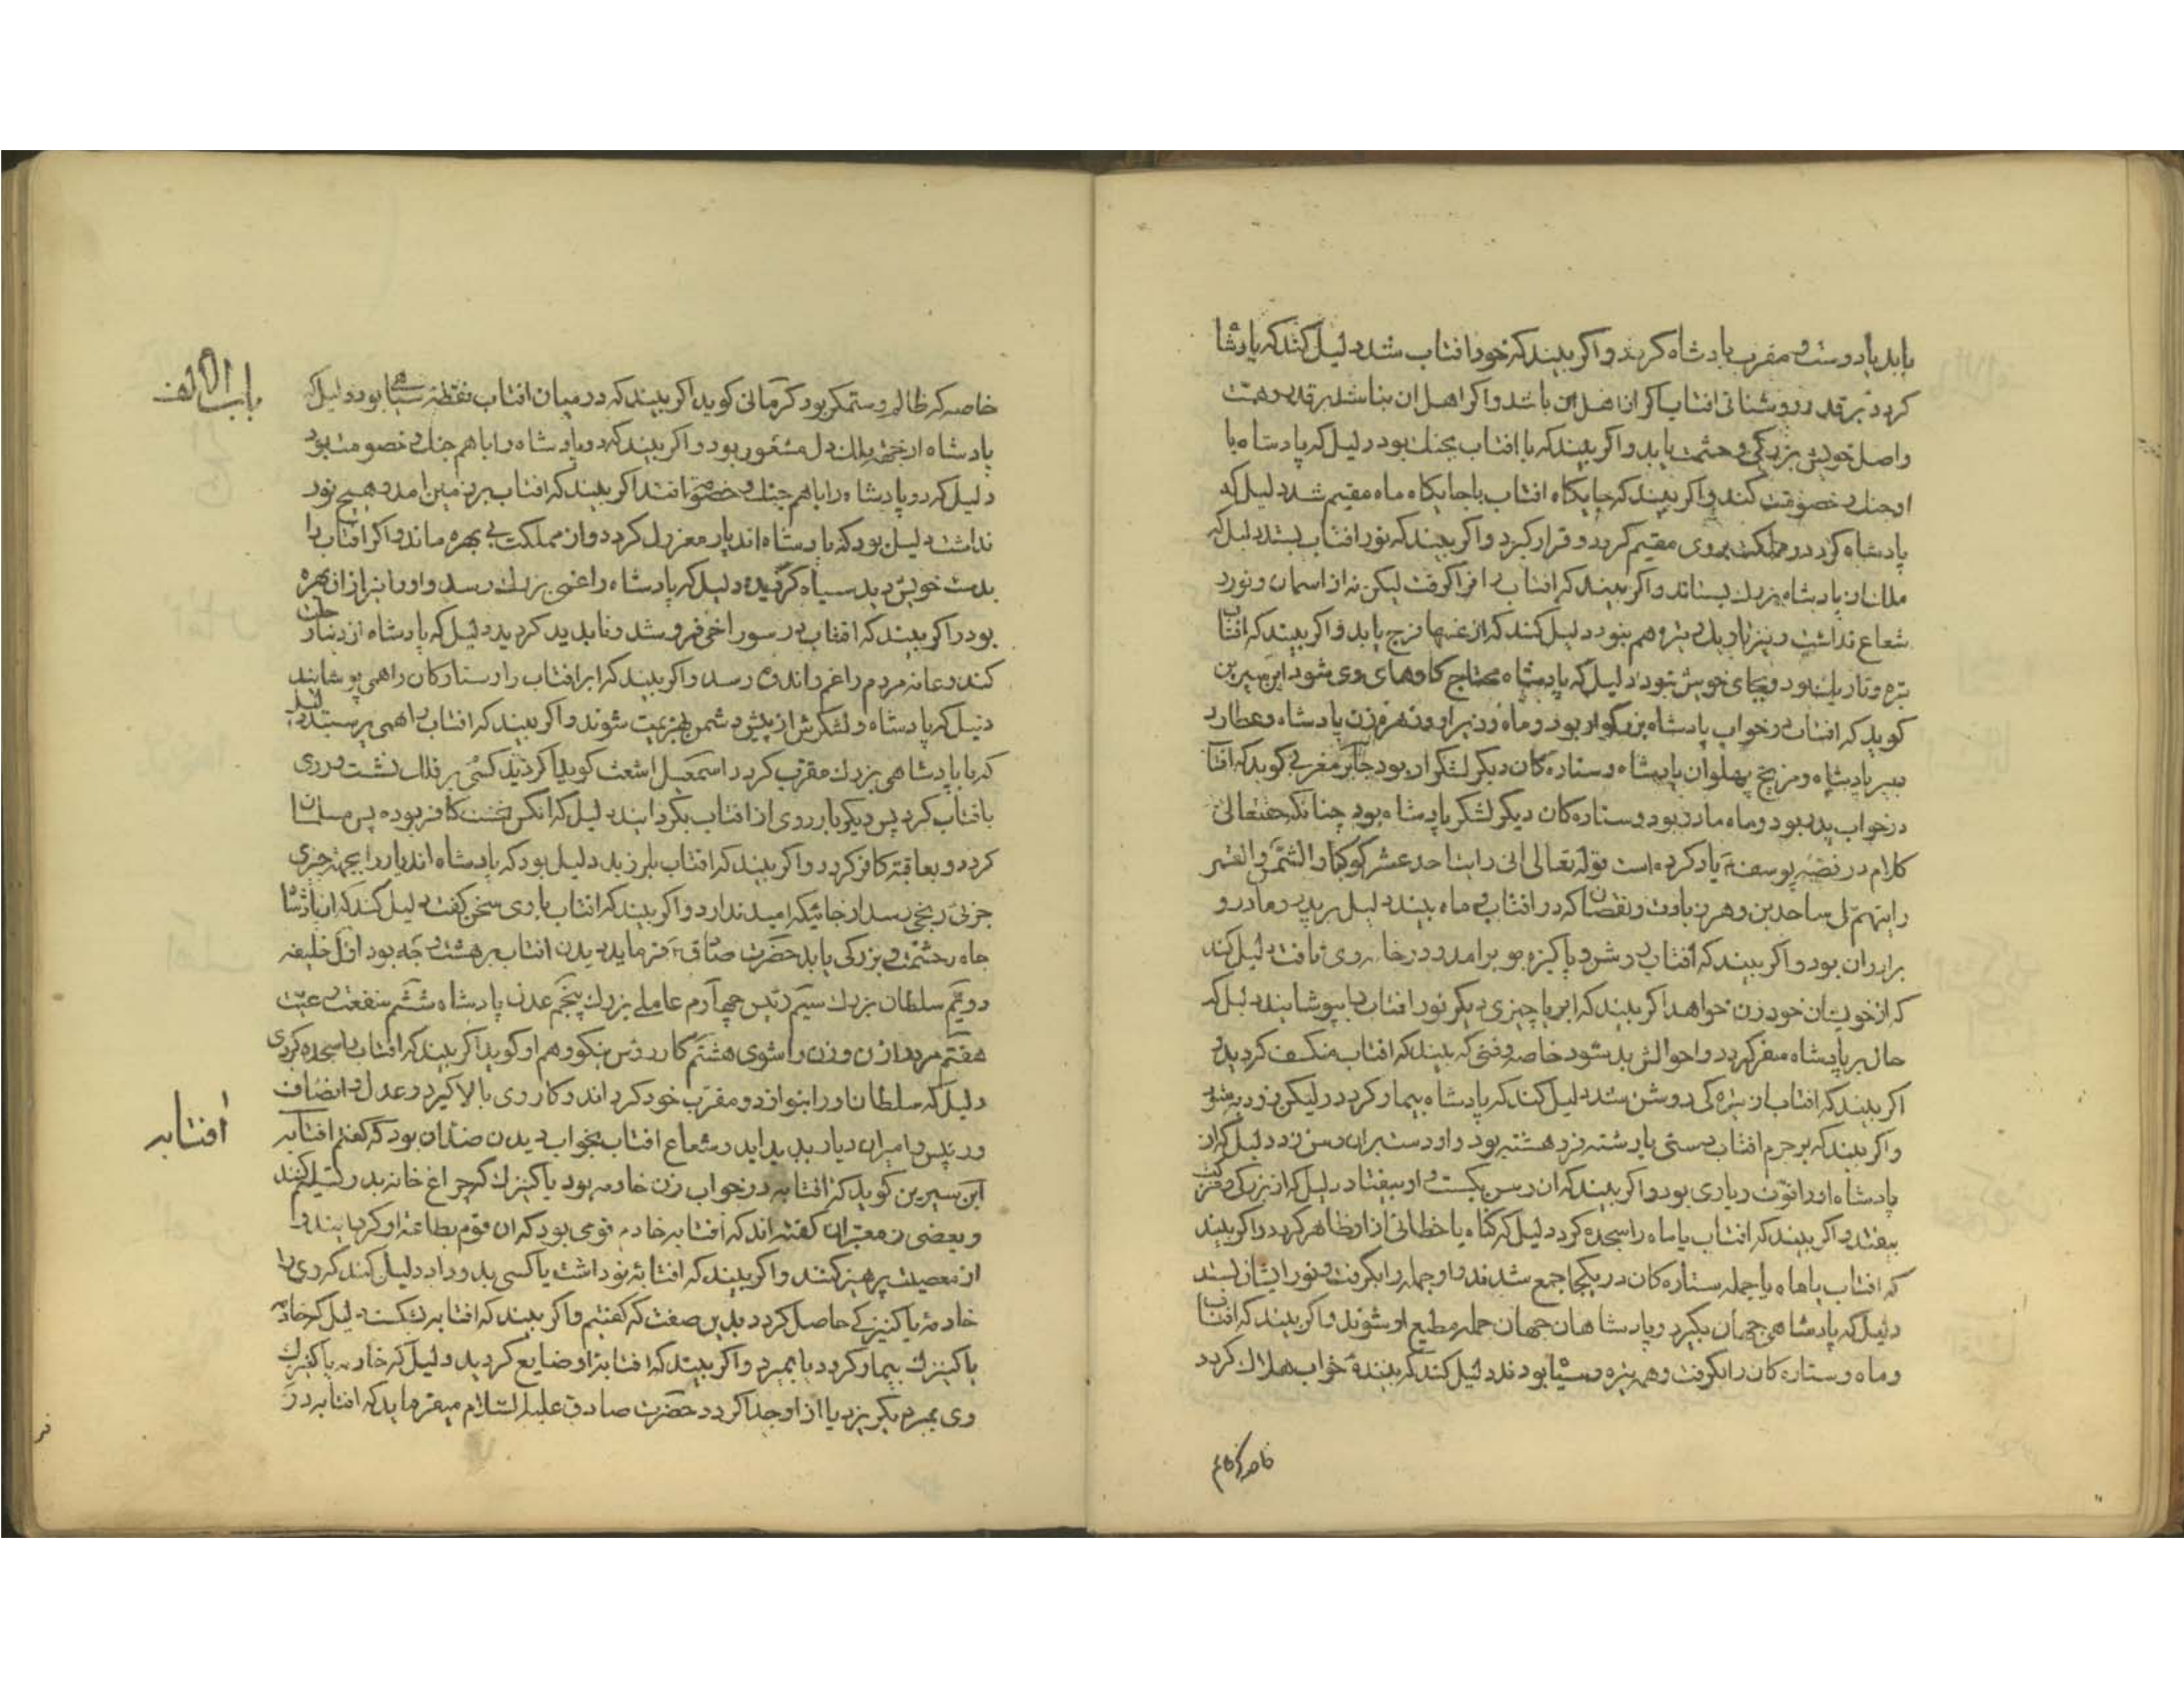 یابد یا دوست و مقرب پادشاه کردد و اکر بیند که خود افتاب شد دلیل کند که پادشا
کردد بر قدر روشنائی افتاب اکر از اهل ان باشد و اکر اهل ان نباشد بر قدر و همت
و اصل خویش بزرکی و حشمت یابد و اکر بیند که با افتاب بجنك بود دلیل که پادشاه با
او جنك و خصومت کند و اکر بیند که جایکاه افتاب یا جایکاه ماه مقیم شد دلیل که
پادشاه کردد در مملکت بروی مقیم کردد و قرار کیرد و اکر بیند که نور افتاب بستد دلیل که
ملك از پادشاه بزرك بستاند و اکر بیند که افتاب را فرا کرفت لیکن نه از اسمان و نور و
شعاع نداشت و نیز تاریك و تیره هم نبود دلیل کند که از غمها فرج یابد و اکر بیند که افتاب
تیره و تاریك بود و بجای خویش نبود دلیل که پادشاه محتاج کاوهای وی شود ابن سیرین
کوید که افتاب در خواب پادشاه بزرکوار بود و ماه وزیر او و زهره زن پادشاه و عطارد
دبیر پادشاه و مریخ پهلوان پادشاه و ستاره کان دیکر لشکر او بود جابر مغربی کوید که افتا
در خواب پدر بود و ماه مادر بود و ستاره کان دیکر لشکر پادشاه بود چنانکه حقتعالی
کلام در قصه یوسف یاد کرده است قوله تعالی انی رایت احد عشر کوکبا و الشمس و القمر
رایتهم لی ساجدین و هر زیادت و نقصان که در افتاب و ماه بیند دلیل بر پدر و مادر و
برادران بود و اکر بیند که افتاب روشن و پاکیزه برامد و در خانه وی تافت دلیل کند
که از خویشان خود زن خواهد اکر بیند که ابر یا چیزی دیکر نور افتاب را بپوشانید دلیل که
حال بر پادشاه متغیر کردد و احوالش بد شود خاصه وقتی که بیند که افتاب منکسف کردید و
اکر بیند که افتاب از تیره کی روشن شد دلیل کند که پادشاه بیمار کردد و لیکن زود به شود
و اکر بیند که بر جرم افتاب رستی یا رشته فرو هشته بود و او دست بران رسن زد دلیل که از
پادشاه او را قوت و یاری بود و اکر بیند که ان رسن بکست و او بیفتاد دلیل که از بزرکی و عزت
بیفتد و اکر بیند که افتاب یا ماه را سجده کرد دلیل که کناه یا خطائی از او ظاهر کردد و اکر بیند
که افتاب با ماه یا جمله ستاره کان در یکجا جمع شدند و او جمله را بکرفت و نور ایشان بستد
دلیل که پادشاهی جهان بکیرد و پادشاهان جهان جمله مطیع او شوند و اکر بیند که افتاب
و ماه و ستاره کان را بکرفت و همه تیره و سیاه بودند دلیل کند که بیننده خواب هلاك کردد
خاصه که ظالم
باب الالف
خاصه که ظالم و ستمکر بود کرمانی کوید اکر بیند که در میان افتاب نقطه سیاهی بود دلیل که
پادشاه از جهة ملك دل مشغور بود و اکر بیند که دو پادشاه را با هم جنك و خصومت بود
دلیل که دو پادشاه را با هم جنك و خصومت افتد اکر بیند که افتاب بر زمین امد و هیچ نور
نداشت دلیل بود که پادشاه اندیار معزول کردد و از مملکت بی بهره ماند و اکر افتاب را
بدست خویش دید سیاه کردیده دلیل که پادشاه را غمی بزرك رسد و او را نیز از ان بهره
بود و اکر بیند که افتاب در سوراخی فرو شد و ناپدید کردید دلیل که پادشاه از دنیا رحلت
کند و عامه مردم را غم و اندوه رسد و اکر بیند که ابر افتاب را و ستارکان را همی پوشانید
دلیل که پادشاه و لشکرش از پیش دشمن بهزیمت شوند و اکر بیند که افتاب را همی پرستید دلیل
که با پادشاهی بزرك مقرب کردد اسمعیل اشعث کوید اکر دید کسی بر فلك نشست و روی
بافتاب کرد پس دیکر بار روی از افتاب بکردانید دلیل که انکس نخست کافر بوده پس مسلمان
کردد و بعاقبت کافر کردد و اکر بیند که افتاب بلرزید دلیل بود که پادشاه اندیار را بجهة چیزی
جزئی رنجی رسد از جائیکه امید ندارد و اکر بیند که افتاب با وی سخن کفت دلیل کند که از پادشا
جاه و حشمت و بزرکی یابد حضرت صادق فرماید دیدن افتاب بر هشت وجه بود اول خلیفه
دویم سلطان بزرك سیم رئیس چهارم عاملی بزرك پنجم عدل پادشاه ششم منفعت رعیت
هفتم مرد از زن و زن را شوی هشتم کار روشن نیکو و هم او کوید اکر بیند که افتاب را سجده کردی
دلیل که سلطان او را بنوازد و مقرب خود کرداند و کار وی بالا کیرد و عدل و انصاف
و رئیس و امیران دیار پدید اید و شعاع افتاب بخواب دیدن ضد ان بود که کفتم افتابه
افتابه
ابن سیرین کوید که افتابه در خواب زن خادمه بود یا کنیزك که چراغ خانه بدو تسلیم کنند
و بعضی از معبران کفته اند که افتابه خادمه قومی بود که ان قوم بطاعت او کرایند و
از معصیت پرهیز کنند و اکر بیند که افتابه نو داشت یا کسی بدو داد دلیل کند که وی را
خادمه یا کنیزکی حاصل کردد بدین صفت که کفتیم و اکر بیند که افتابه بشکست دلیل که خادمه
یا کنیزك بیمار کردد یا بمیرد و اکر بیند که افتابه او ضایع کردید دلیل که خادمه یا کنیزك
وی بمیرد یا بکریزد یا از او جدا کردد حضرت صادق علیه السلام میفرماید که افتابه در